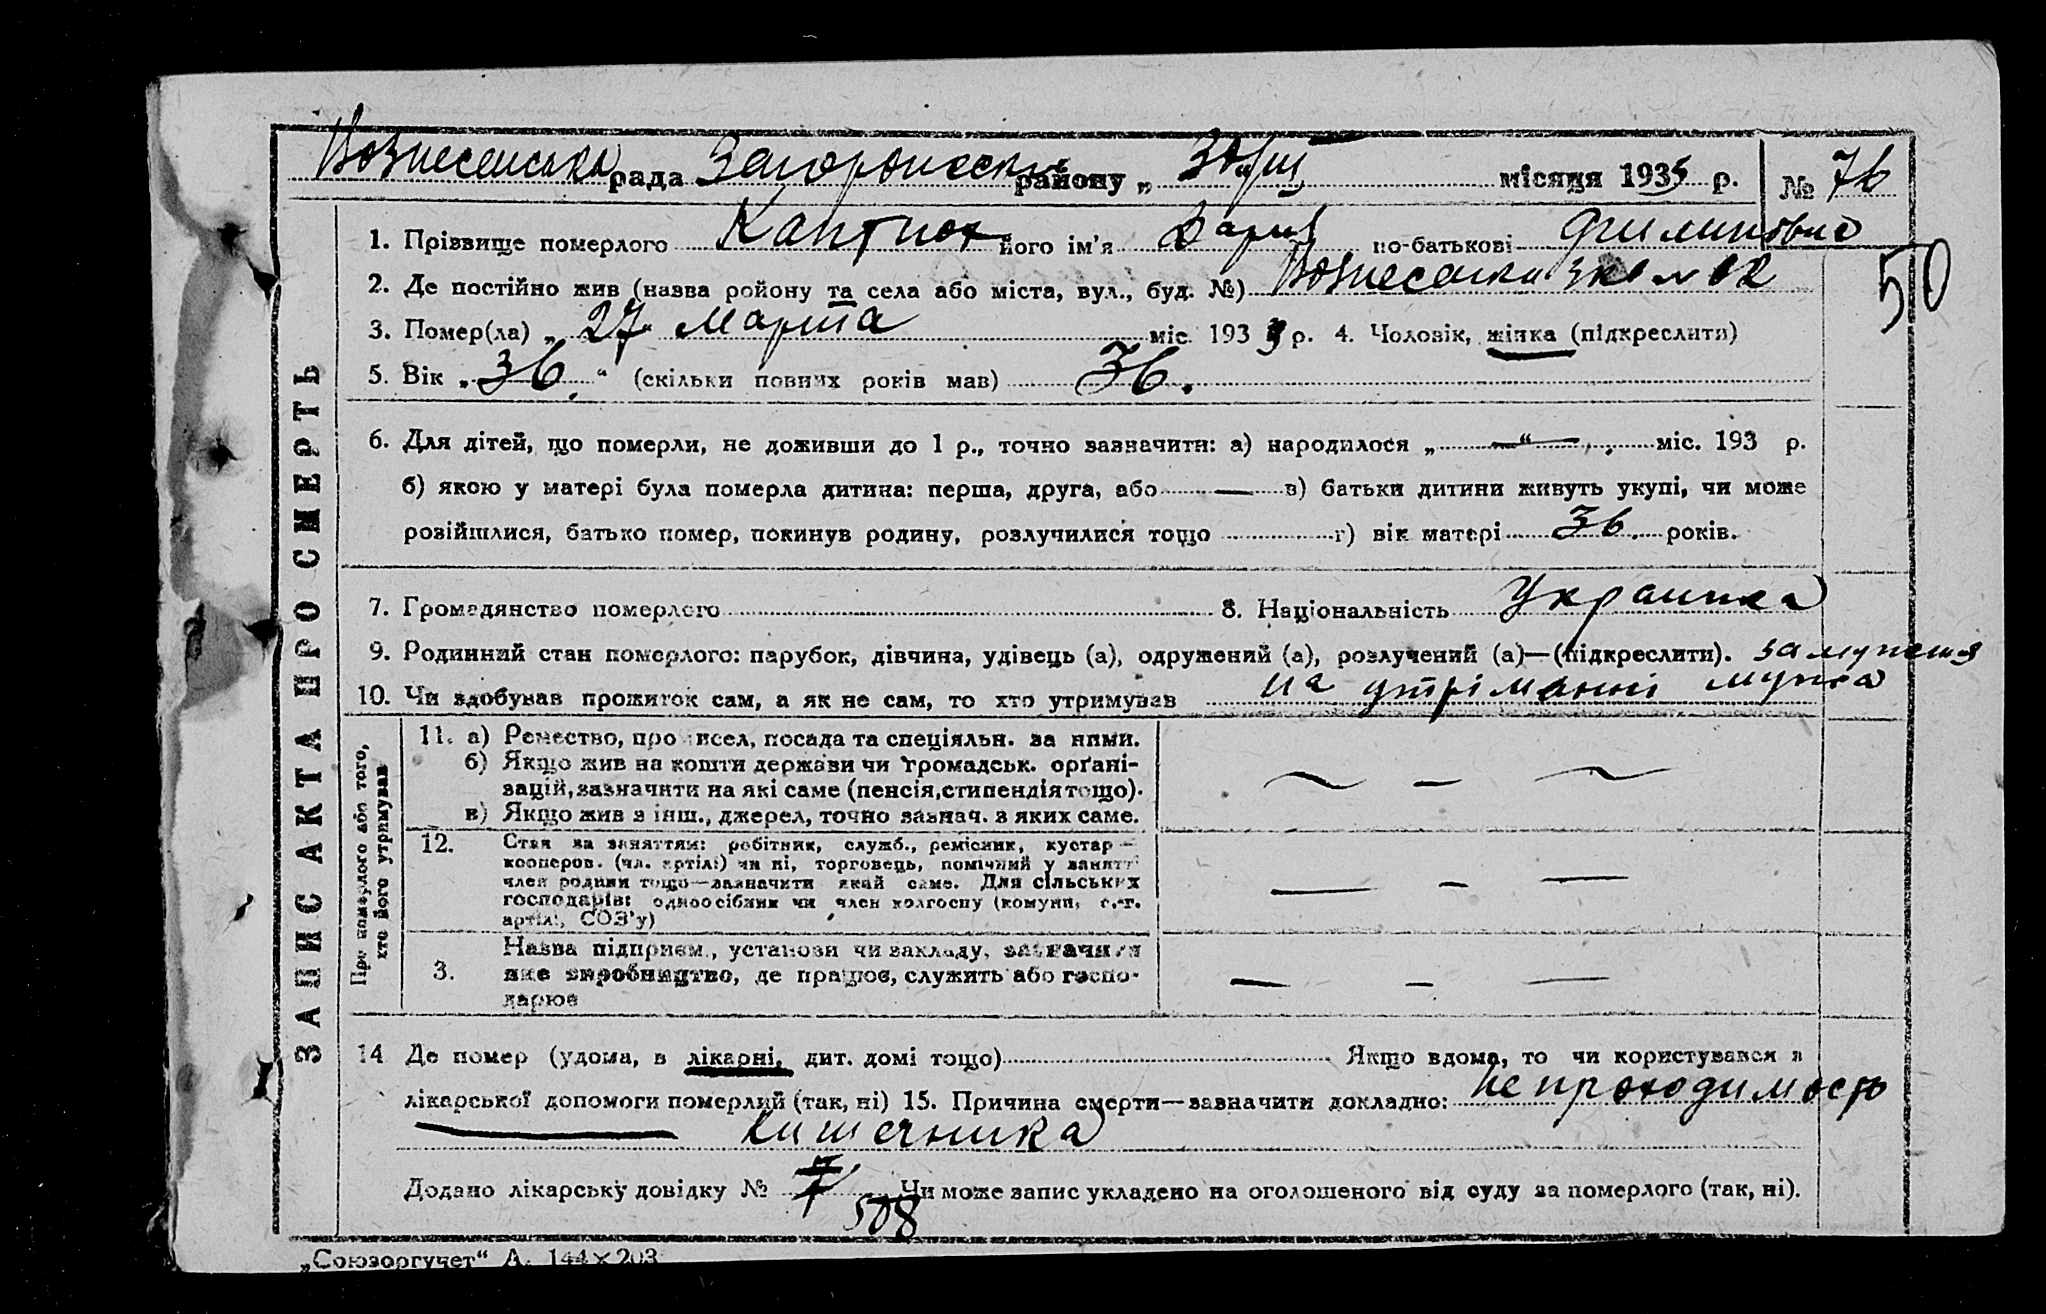 Вознесенська рада району „ 30/III місяця 1933 р. № 76
1. Прізвище померлого його ім'я Дария по-батькові Филиповна
50
2. Де постійно жив (назва ройону та села або міста, вул., буд. №) Вознесенка
3. Помер(ла) „ 27 " Марта міс. 1933 р. 4. Чоловік, жінка (підкреслити)
5. Вік „ 36. " (скільки повних років мав) 36.
6. Для дітей, що померли, не доживши до 1 р., точно зазначити: а) народилося „ — " — міс. 193 р.
б) якою у матері була померла дитина: перша, друга, або — в) батьки дитини живуть укупі, чи може
розійшлися, батько помер, покинув родину, розлучилися тощо г) вік матері 36. років.
7. Громадянство померлого 8. Національність Украинка
9. Родинний стан померлого: парубок, дівчина, удівець (а), одружений (а), розлучений (а)—(підкреслити). замужня
10. Чи здобував прожиток сам, а як не сам, то хто утримував на утріманні мужа
ЗАПИС АКТА ПРО СМЕРТЬ
Про померлого або того,
хто його утримував
11. а) Ремество, промисел, посада та спеціяльн. за ними.
б) Якщо жив на кошти держави чи громадськ. орґані-
зацій, зазначити на які саме (пенсія, стипендія тощо).
в) Якщо жив з інш., джерел, точно зазнач. з яких саме.
12. Стан за заняттям: робітник, служб., ремісник, кустар —
кооперов. (чл. артілі) чи ні, торговець, помічний у занятті
член родини тощо—зазначити який саме. Для сільських
господарів: одноосібник чи член колгоспу (комуни, с.-г.
артілі, СОЗ'у)
Назва підприєм., установи чи закладу, зазначити
3. яке виробництво, де працює, служить або госпо-
дарює
14 Де помер (удома, в лікарні, дит. домі тощо) Якщо вдома, то чи користувався з
лікарської допомоги померлий (так, ні) 15. Причина смерти—зазначити докладно: непроходимость
кишечника
Додано лікарську довідку № 7/508 Чи може запис укладено на оголошеного від суду за померлого (так, ні).
„Союзоргучет" А. 144×203